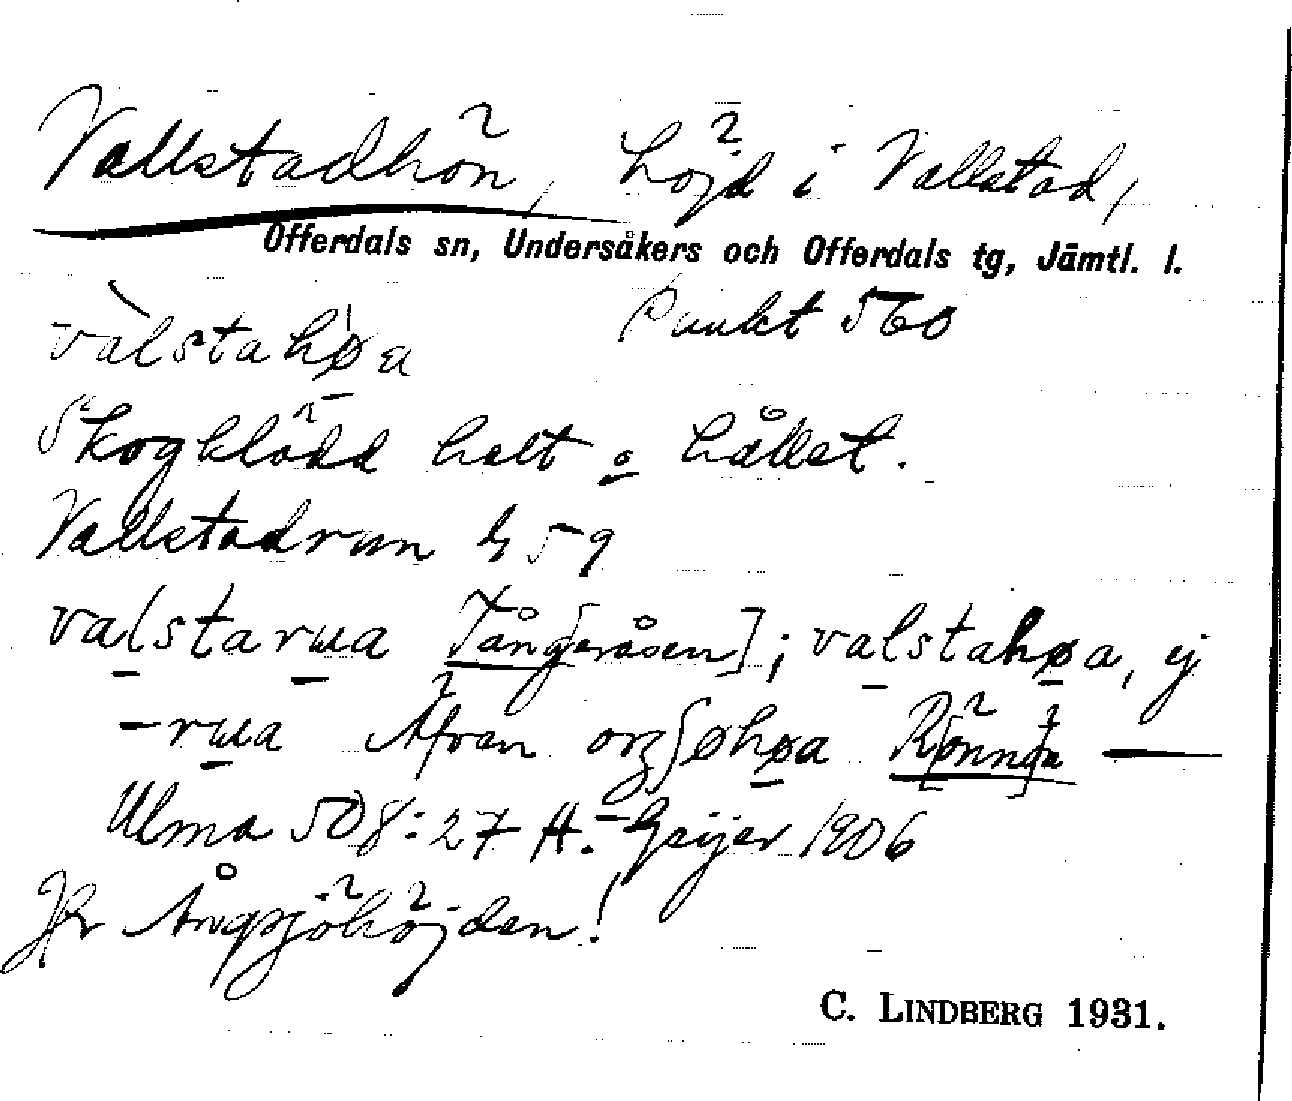 Vallstadhön, höjd i Vallstad,
Offerdals sn, Undersåkers och Offerdals tg, Jämtl. l.
valstahøa Punkt 560
Skogklädd helt o hållet.
Vallstadrun G 59
valstarua Tångeråsen]; valstahøa, ej
-rua Åfran Rönnöfa —
Ulma 508:27 H. Geijer 1906
Jfr Ångsjöhöjden!
C. LINDBERG 1931.